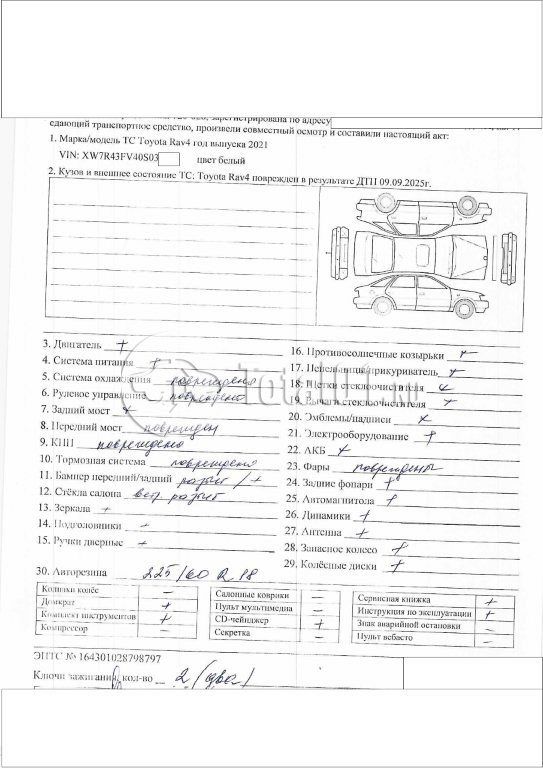 зарегистрирована по адресу
сдающий транспортное средство, произвели совместный осмотр и составили настоящий акт:
1. Марка/модель ТС Toyota Rav4 год выпуска 2021
VIN: XW7R43FV40S03 цвет белый
2. Кузов и внешнее состояние ТС: Toyota Rav4 поврежден в результате ДТП 09.09.2025г.
3. Двигатель +
4. Система питания +
5. Система охлаждения повреждена
6. Рулевое управление повреждено
7. Задний мост +
8. Передний мост поврежден
9. КПП повреждено
10. Тормозная система повреждена
11. Бампер передний/задний разбит / +
12. Стёкла салона разбит
13. Зеркала +
14. Подголовники -
15. Ручки дверные +
16. Противосолнечные козырьки +
17. Пепельница/прикуриватель +
18. Щетки стеклоочистителя +
19. Рычаги стеклоочистителя +
20. Эмблемы/надписи +
21. Электрооборудование +
22. АКБ +
23. Фары повреждены
24. Задние фонари +
25. Автомагнитола +
26. Динамики +
27. Антенна +
28. Запасное колесо +
29. Колёсные диски +
30. Авторезина 225/60 R 18
Колпаки колёс –
Домкрат +
Комплект инструментов +
Компрессор –
Салонные коврики –
Пульт мультимедиа –
CD-чейнджер +
Секретка –
Сервисная книжка +
Инструкция по эксплуатации +
Знак аварийной остановки –
Пульт вебасто –
ЭПТС № 164301028798797
Ключи зажигания, кол-во 2 (два)